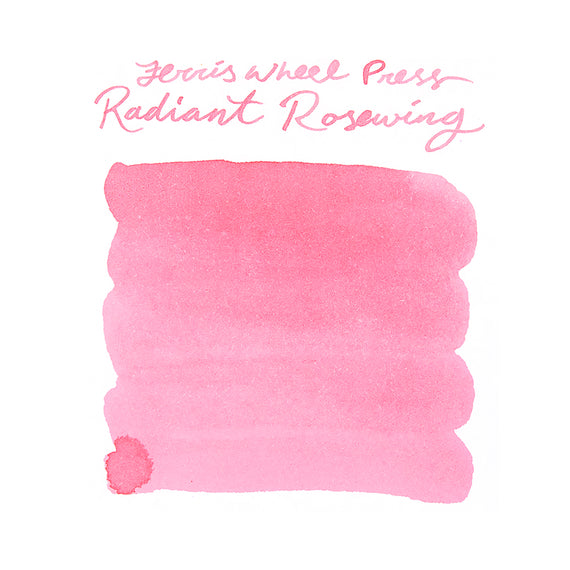 Ferris Wheel Press
Radiant Rosewing